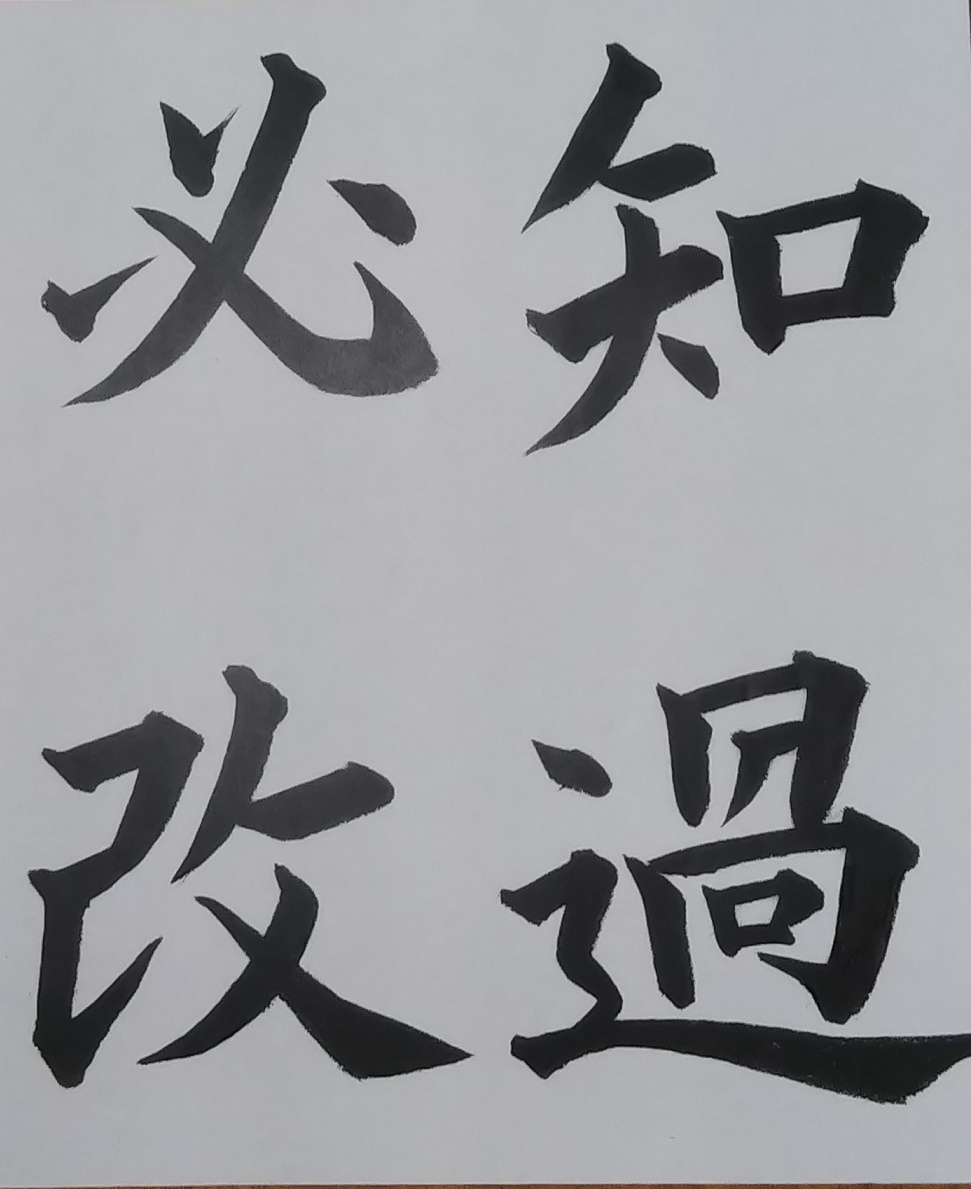 知過
必改